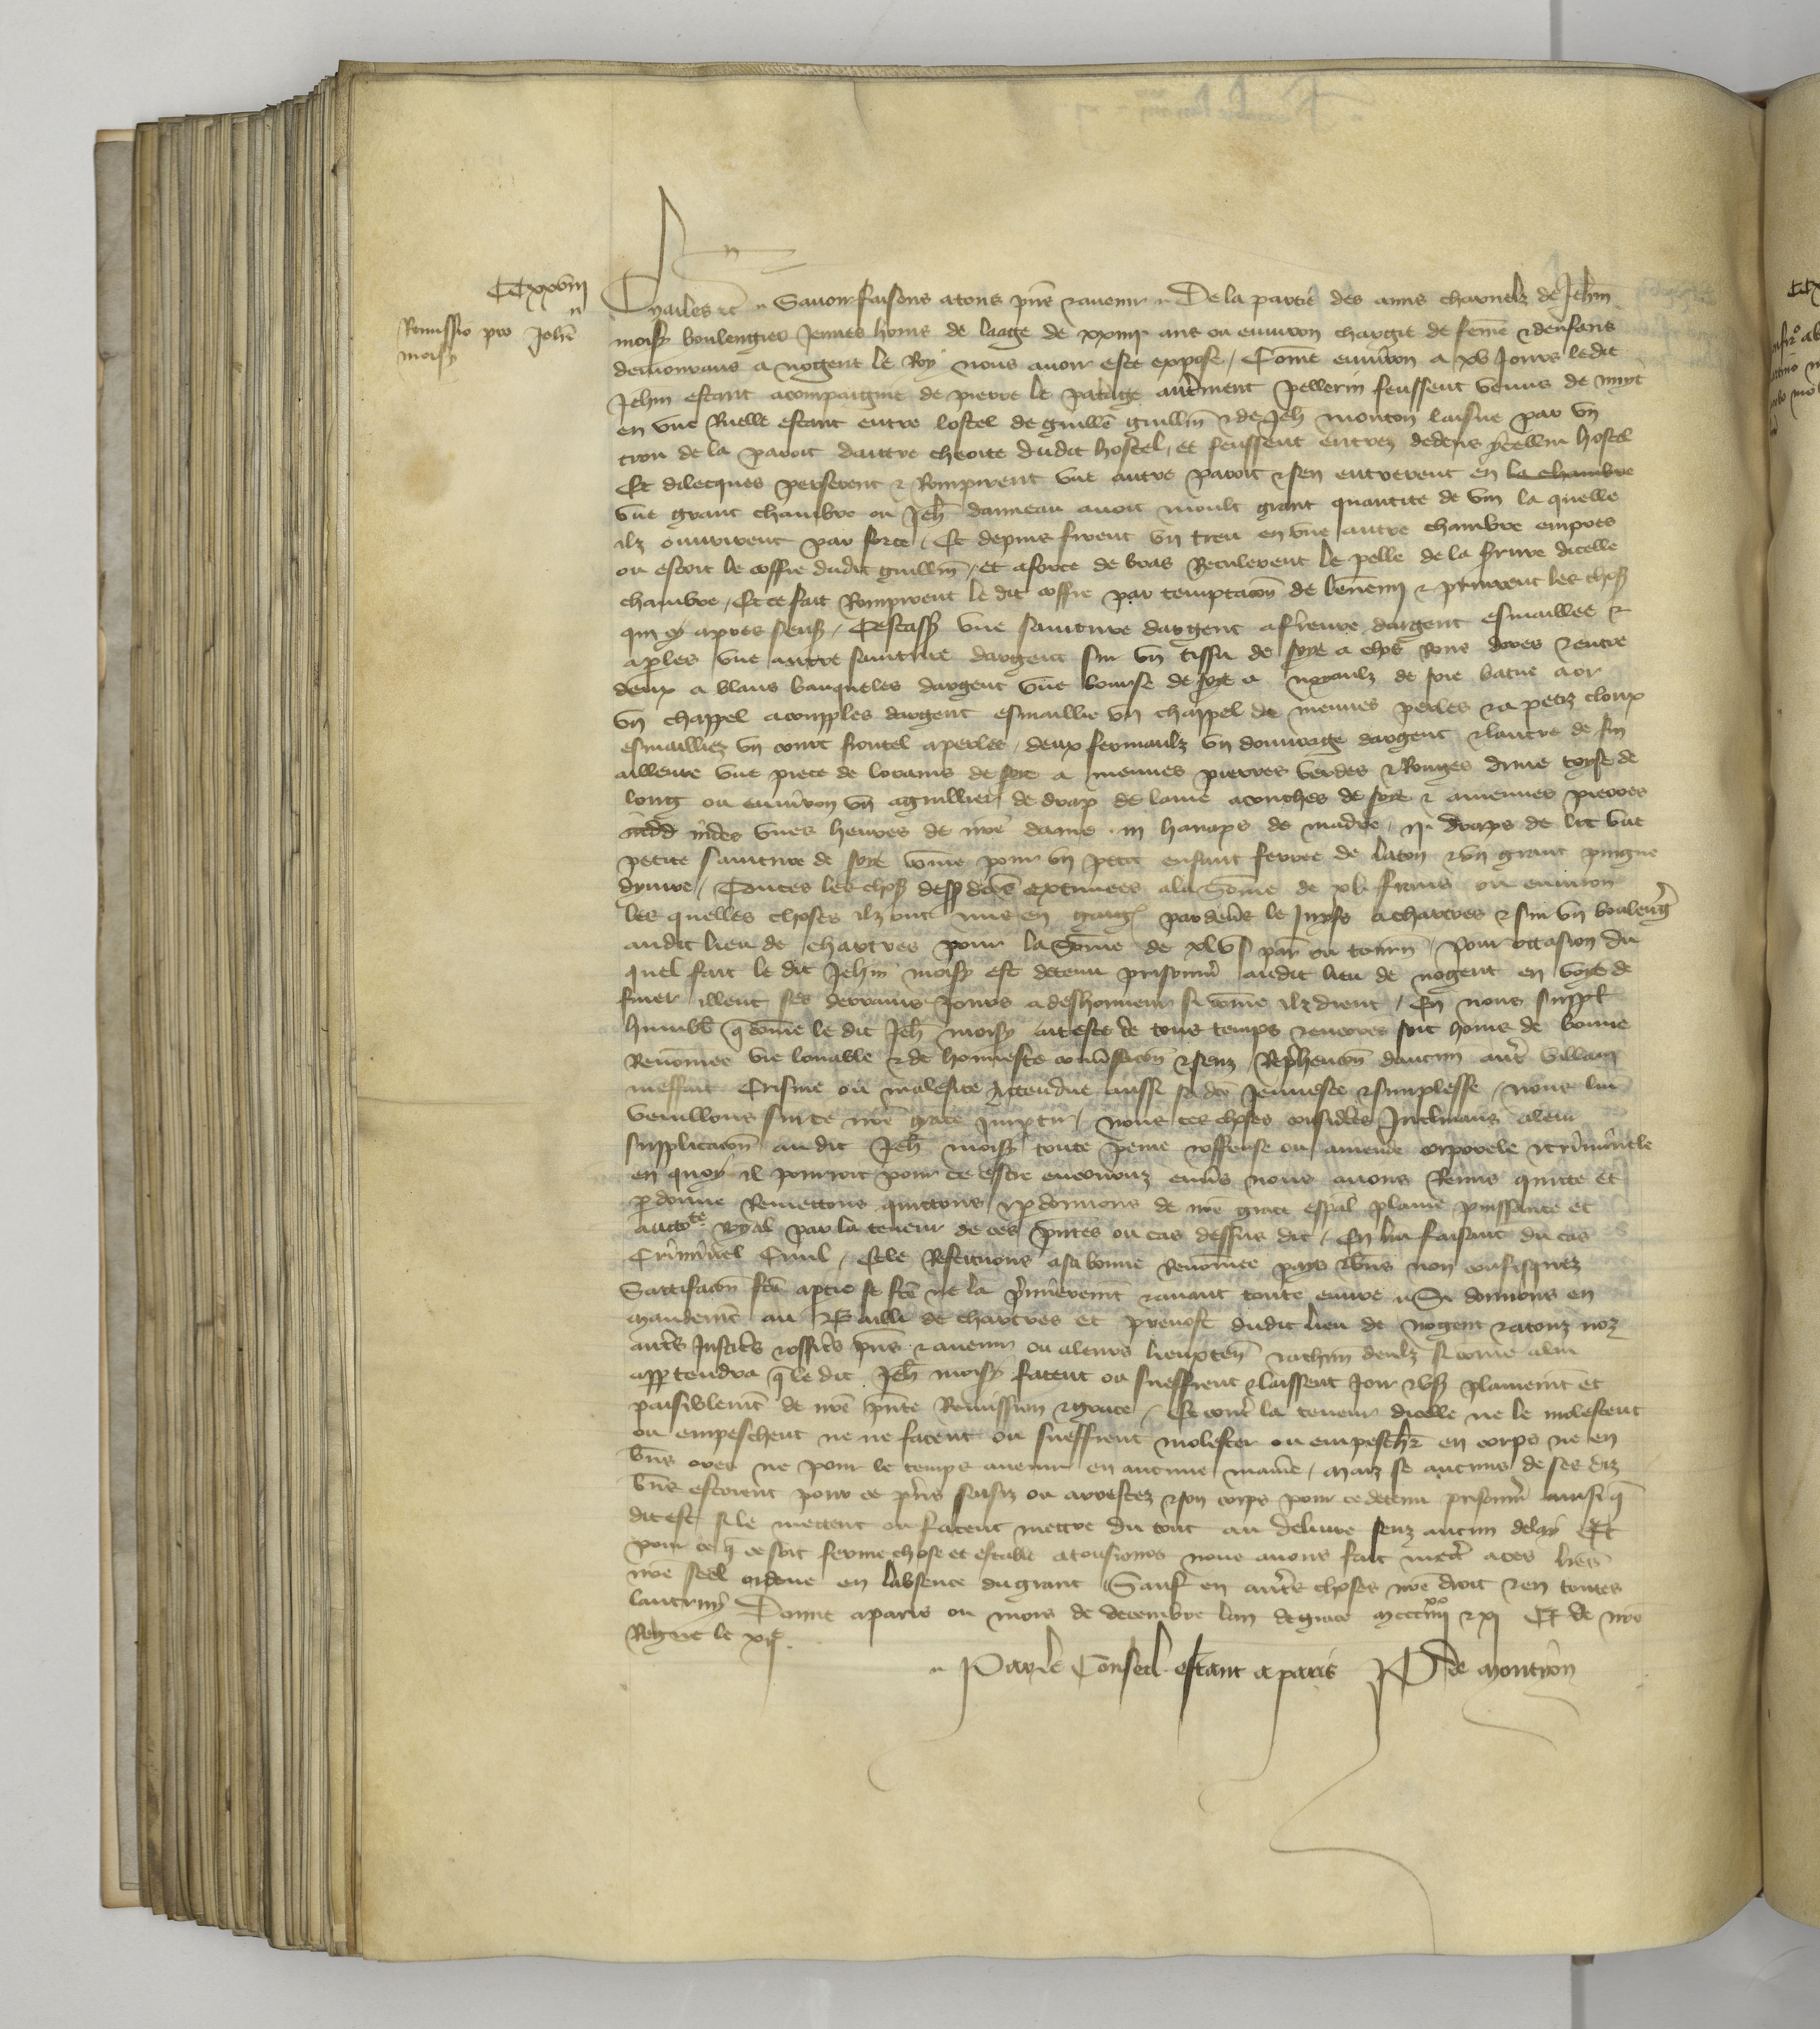 CCxxviii
Remissio pro Johe
moisy
Charles etc Savoir faisons a tous pns et avenir De la partie des amis charnelz de Jehin
moisy boulengier Jeunes homs de laage de xxiiii ans ou environ chargie de feme et denfans
demourans a nogent le Roy nous avoir este expose / Come environ a xv Jours ledit
Jehin estant acompaignie de pierre le patage autrement pellerin feussent venus de nuyt
en une Ruelle estant entre lostel de guille guillin et de Jeh mouton laisne par un
trou de la paroit dautre cheoite dudit hostel, et feussent entrez dedens ycellui hostel
Et dilecques perserent et Rompirent une autre paroit et sen entrerent en la chambre
une grant chambre ou Jeh danneau avoit moult grant quantite de vin la quelle
ilz ouvrirent par force / Et depuis firent un treu en une autre chambre empres
ou estoit le coffre dudit guillin / et a force de bras Reculerent le pelle de la serrure dicelle
chambre / Et ce fait Rompirent le dit coffre par temptacon de lennemi et prinrent les choses
qui cy apres sensuient / Cestass une sainture dargent a ferreure dargent esmaillee et
a perles une autre sainture dargent sur un tissu de soye a clos Rons dores et entre
deux a blans banqueles dargent une bourse de soye a noyaulz de soie batue a or
un chappel a couples dargent esmaillie un chappel de menues perles et a petiz cloux
esmailliez un court frontel a perles / deux fermaulz un douvrage dargent et lautre de fin
ailleure une piece de locans de soye a menues pierres verdes et Rouges dune toyse de
long ou environ un aguillier de drap de laine a couches de soye et a menues pierres
indes unes heures de nre dame iii hanaps de madre / ii draps de lit une
petite sainture de soye come pour un petit enfant ferree de laton et un grant pingne
dyvire / Toutes les choses dessusdites extimees a la Some de xl frans ou environ
les quelles choses ilz ont mis en gaige par devers le Juyfs a chartres et sur un boulengier
audit lieu de chartres pour la Some de xlvs par ou tourn / Pour occasion du
quel fait le dit Jehin moisy est detenu prisonnier audit lieu de nogent en voye de
finer illeuc ses derrains Jours a deshonneur si come ilz dient / En nous suppl
humbl q come le dit Jeh moisy ait este de tous temps et encores soit homs de bonne
Renomee vie louable et de honneste conversacon et senz Reprehencon daucun autre villain
meffait Crisme ou malefice Attendue aussi sa dce Jeunesce et simplesse / nous lui
vueillons sur ce nre grace Impartir / nous ces choses considerees Inclinans a leur
supplicacon au dit Jeh moisy toute peine offense ou amende corporele et criminele
en quoy il pourroit pour ce estre encouruz envers nous avons Remis quicte et
pdonne Remettons quictons et pdonnons de nre grace espal plaine puissance et
auctorite Royal par la teneur de ces pntes ou cas dessus dit / En lui faisant du cas
Criminel Civil / Et le Restituons a sa bonne Renomee pays et biens non confisquez
Satisfacon fce a partie se fce ne la premierement et avant toute euvre Si donnons en
mandemt au Bailli de chartres et prevost dudit lieu de nogent et a touz noz
autres Justiciers et officiers pns et avenir ou a leurs lieuxten et a chun deulz si come a lui
apptendra q le dit Jeh moisy facent ou sueffrent et laissent Joir et user plainemt et
paisiblemt de nre pnte Remission et grace / Et contre la teneur dicelle ne le molestent
ou empeschent ne ne facent ou sueffrent molester ou empescher en corps ne en
biens ores ne pour le temps avenir en aucune maniere / maiz se aucuns de ses diz
biens estoient pour ce prins saisiz ou arrestez et son corps pour ce detenu prisonnier ainsi q
dit est si le mettent ou facent mettre du tout au delivre senz aucun delay Et
pour ce q ce soit ferme chose et estable a tousiours nous avons fait mettre a ces lres
nre seel ordene en labsence du grant Sauf en autres choses nre droit et en toutes
lautruy Donne a paris ou mois de decembre lan de grace mccciiiixx et xi Et de nre
Regne le xiie
Par le Conseil estant a paris P de montron